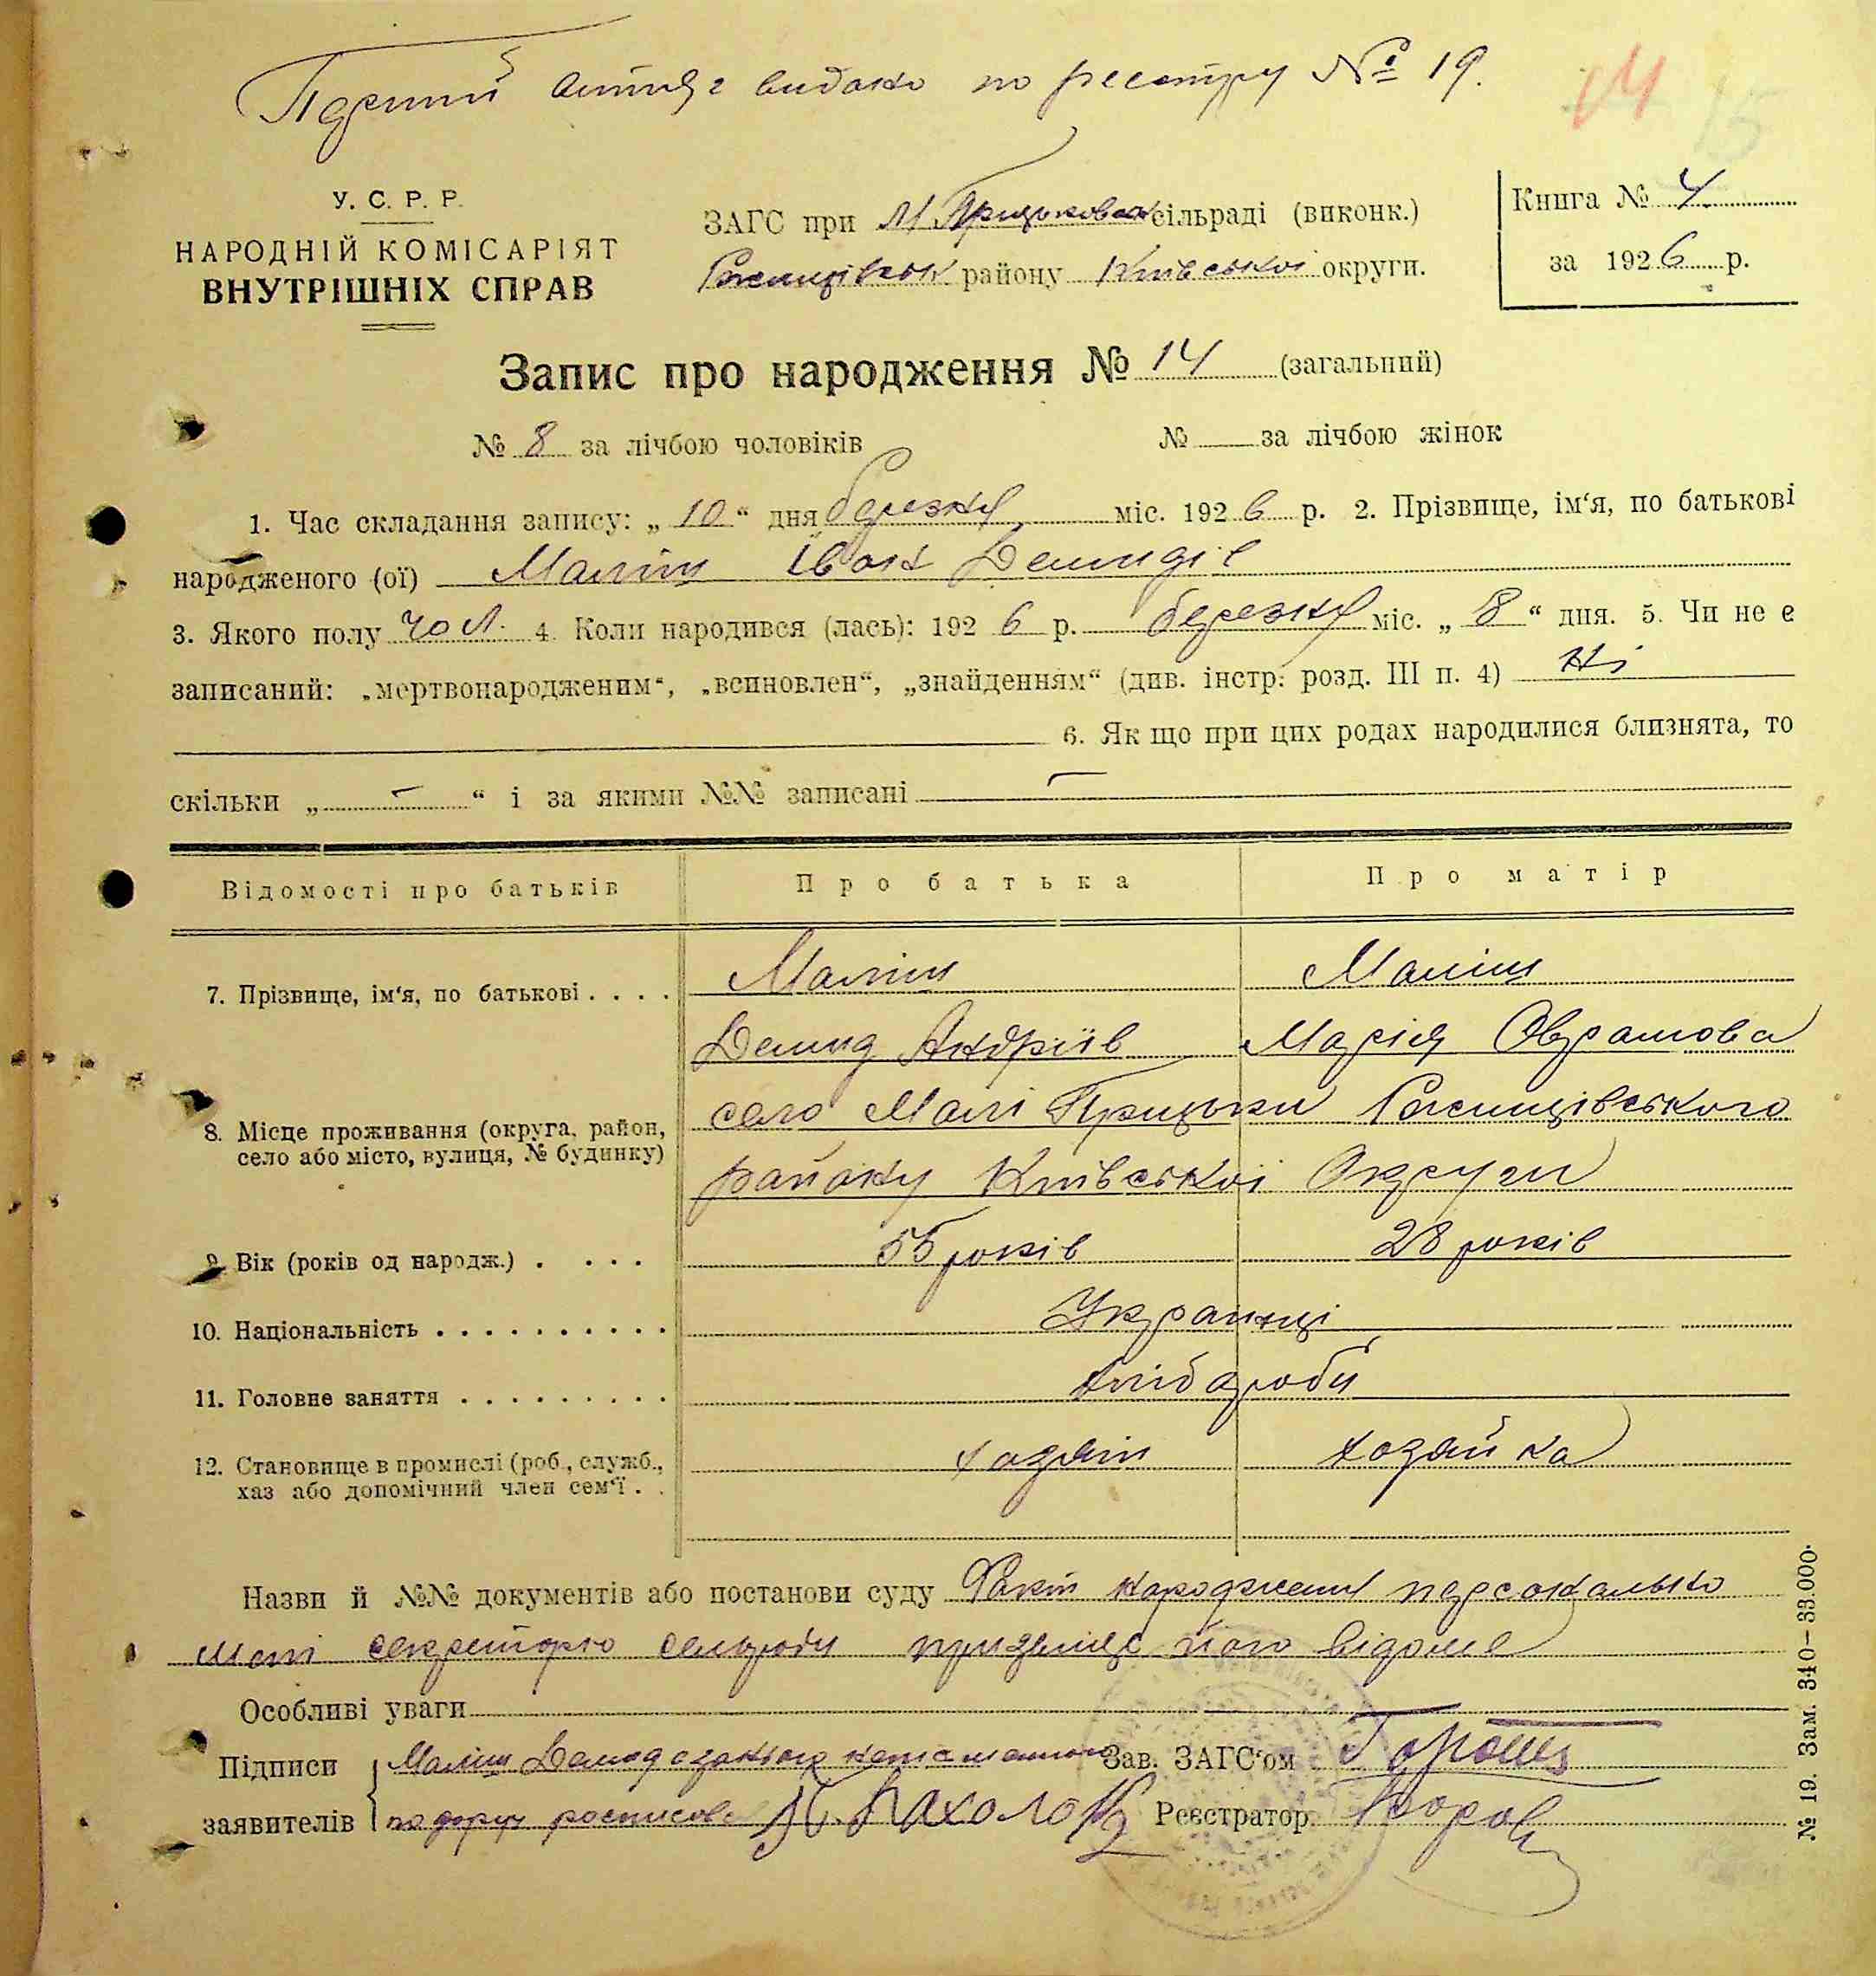 витяг видано по реєстру № 19.
14 15
У. С. Р. Р.
НАРОДНІЙ КОМІСАРІЯТ
ВНУТРІШНІХ СПРАВ
ЗАГС при М Прицьковск сільраді (виконк.)
району Київської округи.
Книга № 4
за 1926 р.
Запис про народження № 14 (загальний)
№ 8 за лічбою чоловіків № за лічбою жінок
1. Час складання запису: „ 10 “ дня березня міс. 1926 р. 2. Прізвище, ім‘я, по батькові
народженого (ої) Маліш Іван Демидів
3. Якого полу чол. 4. Коли народився (лась): 1926 р. березня міс. „ 8 “ дня. 5. Чи не є
записаний: „мертвонародженим“, „всиновлен“, „знайденням“ (див. інстр. розд. III п. 4) Ні
6. Як що при цих родах народилися близнята, то
скільки „ — “ і за якими №№ записані —
Відомості про батьків Про батька Про матір
7. Прізвище, ім‘я, по батькові . . . . Маліш Маліш
Демид Андріїв Марія Оврамова
8. Місце проживання (округа, район, село Малі Прицьки Ржищівського
село або місто, вулиця, № будинку)
району Київської Округи
9. Вік (років од народж.) . . . . 55 років 28 років
10. Національність . . . . . . . . . . Українці
11. Головне заняття . . . . . . . . . хлібороби
12. Становище в промислі (роб., служб., хазяїн хозяйка
хаз або допомічний член сем‘ї . .
Назви й №№ документів або постанови суду Факт народження персонально
мені секретарю сельради відоме
Особливі уваги
Підписи Маліш Демид Зав. ЗАГС‘ом
заявителів Реєстратор
№ 19. Зам. 340—33.000.